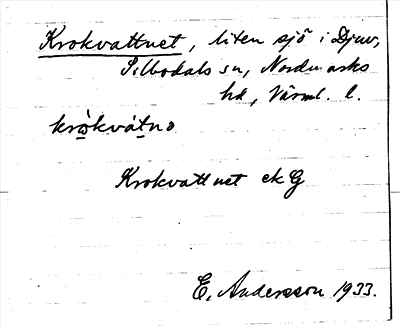 Krokvattnet, liten sjö i Djuv,
Silbodals sn, Nordmarks
hd, Värml. l.
kròkvátnə
Krokvattnet ekG
E. Andersson 1933.